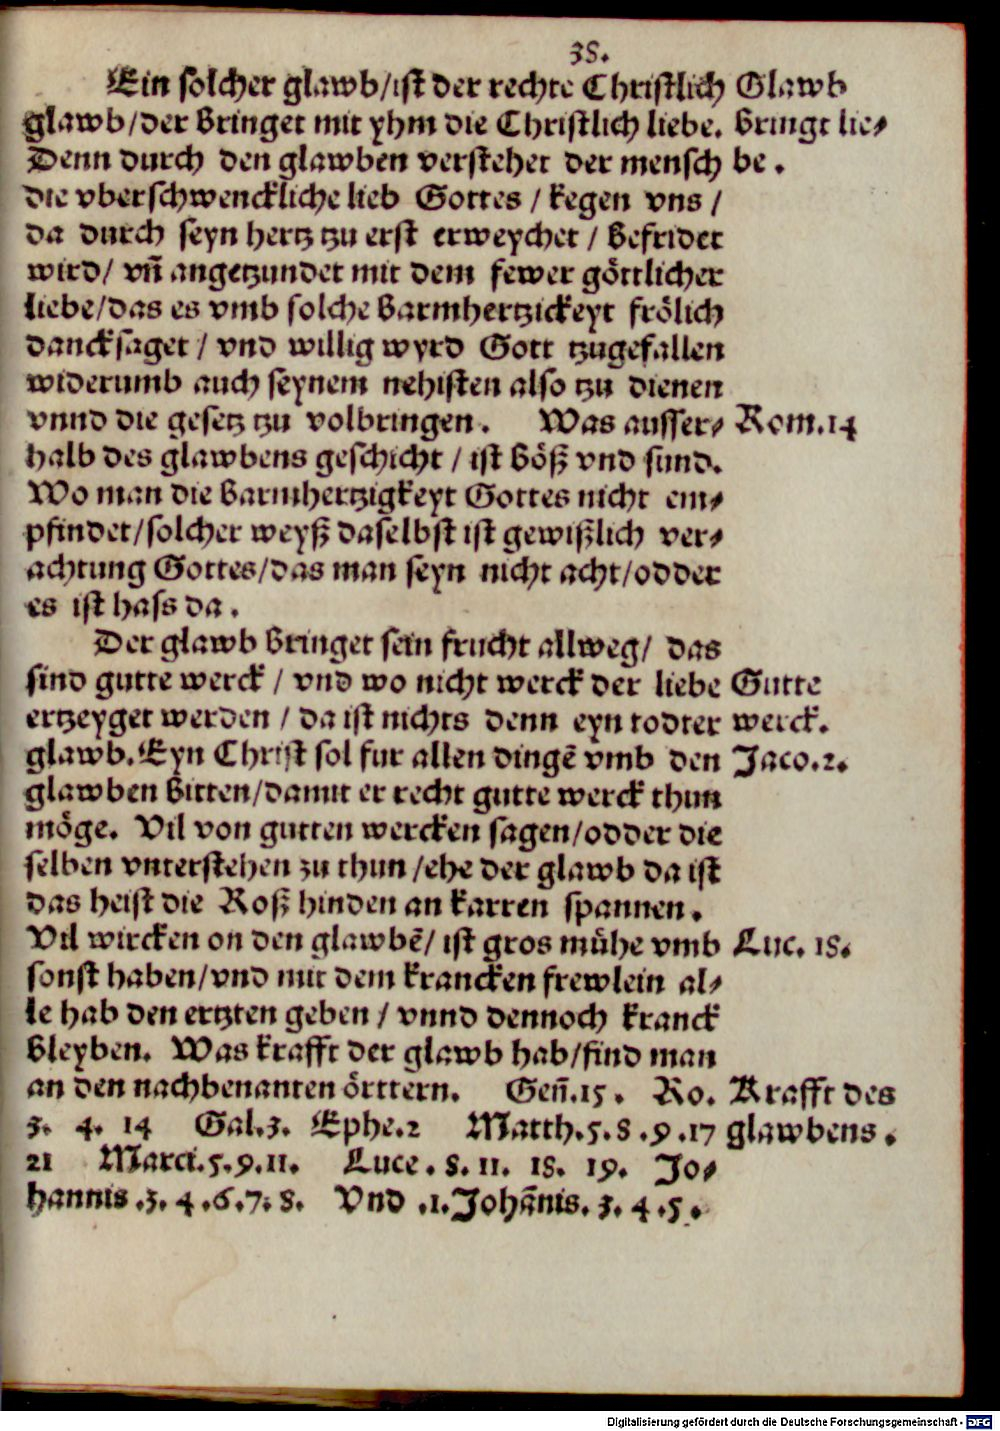 38.
Ein solcher glawb/ist der rechte Christlich Glawb
glawb/der bringet mit yhm die Christlich liebe. bringt lie⸗
Denn durch den glawben verstehet der mensch be.
die vberschwenckliche lieb Gottes / kegen vns /
da durch seyn hertz tzu erst erweychet / befridet
wird/ vñ angetzundet mit dem fewer göttlicher
liebe/das es vmb solche barmhertzickeyt frölich
dancksaget / vnd willig wyrd Gott tzugefallen
widerumb auch seynem nehisten also tzu dienen
vnnd die gesetz tzu volbringen. Was ausser⸗ Rom.14
halb des glawbens geschicht / ist böß vnd sund.
Wo man die barmhertzigkeyt Gottes nicht em⸗
pfindet/solcher weyß daselbst ist gewißlich ver⸗
achtung Gottes/das man seyn nicht acht/odder
es ist hass da.
Der glawb bringet sein frucht allweg/ das
sind gutte werck / vnd wo nicht werck der liebe Gutte
ertzeyget werden / da ist nichts denn eyn todter werck.
glawb. Eyn Christ sol fur allen dingē vmb den Jaco.2.
glawben bitten/damit er recht gutte werck thun
möge. Vil von gutten wercken sagen/odder die
selben vnterstehen zu thun /ehe der glawb da ist
das heist die Roß hinden an karren spannen.
Vil wircken on den glawbē/ ist gros mühe vmb Luc. 18.
sonst haben/vnd mit dem krancken frewlein al⸗
le hab den ertzten geben / vnnd dennoch kranck
bleyben. Was krafft der glawb hab/find man
an den nachbenanten örttern. Geñ.15. Ro. Krafft des
3. 4. 14 Gal.3. Ephe.2 Matth.5.8.9.17 glawbens.
21 Marci.5.9.11. Luce. 8. 11. 18. 19. Jo⸗
hannis.3.4.6.7.8. Vnd .1.Johānis.3.4.5.
Digitalisierung gefördert durch die Deutsche Forschungsgemeinschaft - DFG